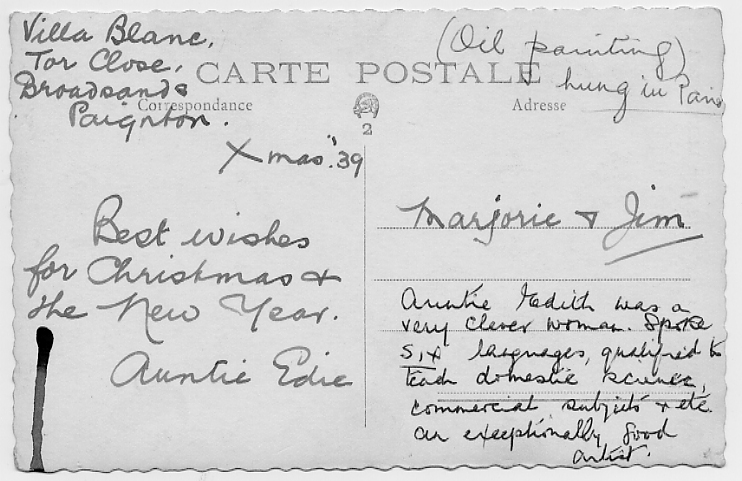 Villa Blanc,
Tor Close,
Broadsands
Paignton.
Xmas '39
(Oil painting)
hung in Paris
CARTE POSTALE
Correspondance
Adresse
2
Best wishes
for Christmas &
the New Year.
Auntie Edie
Marjorie & Jim
Auntie Edith was a
very clever woman. Spoke
six languages, qualified to
teach domestic science,
commercial subjects & etc.
an exceptionally good
artist.